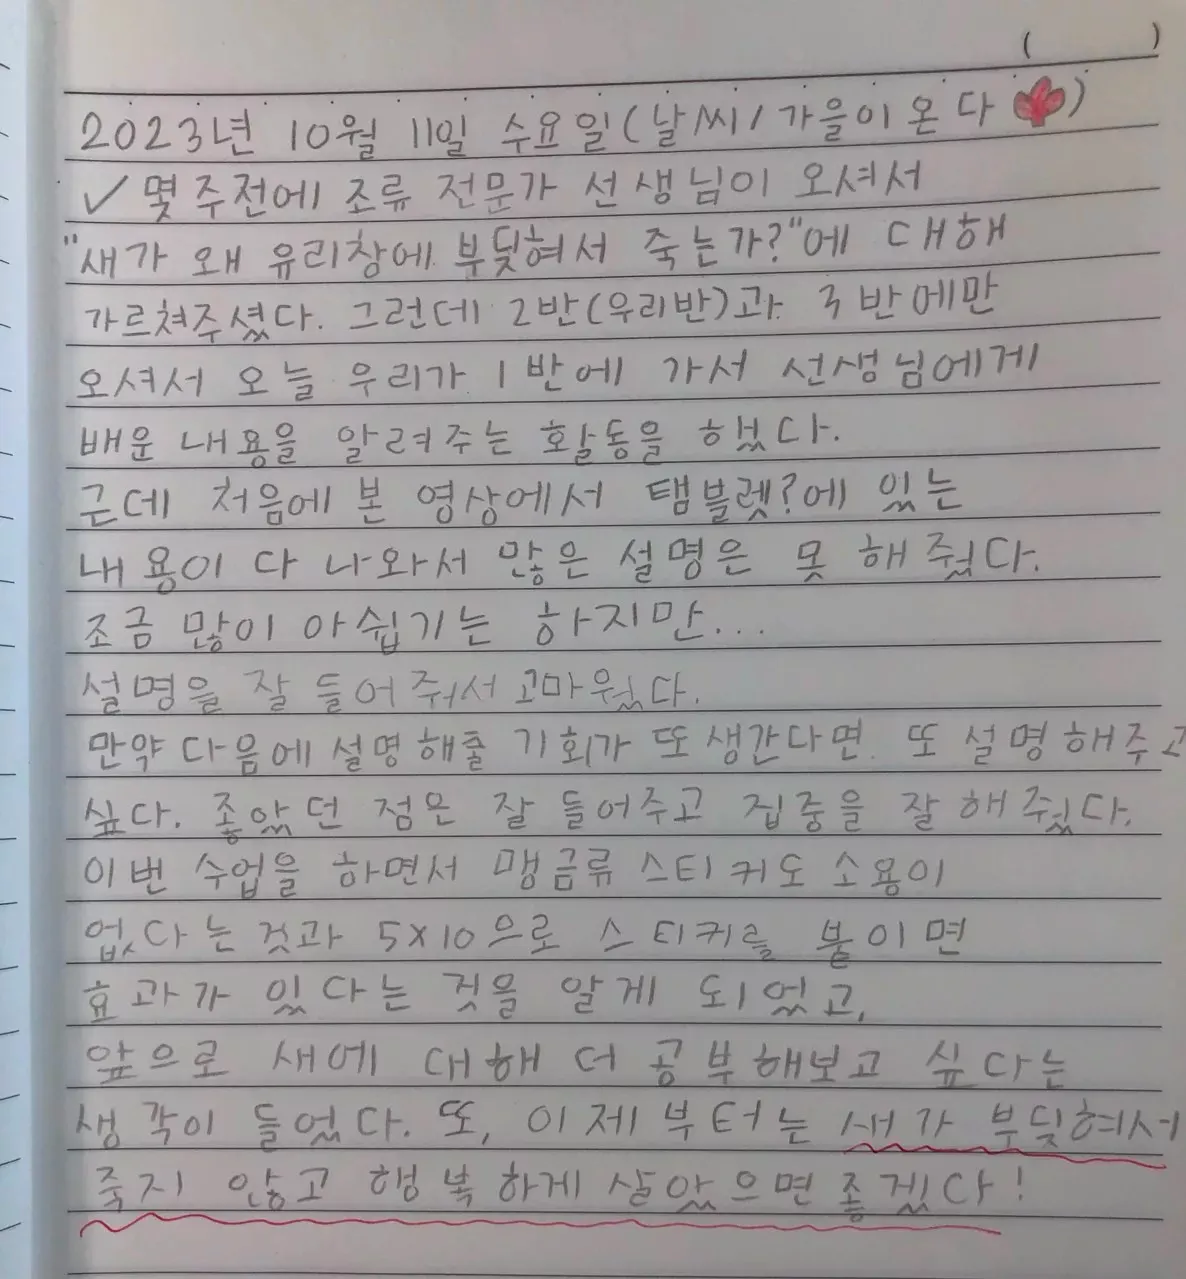 (          )
2023년 10월 11일 수요일(날씨/가을이 온다 )
✓몇주전에 조류 전문가 선생님이 오셔서
"새가 왜 유리창에 부딪혀서 죽는가?"에 대해
가르쳐주셨다. 그런데 2반(우리반)과 3반에만
오셔서 오늘 우리가 1반에 가서 선생님에게
배운 내용을 알려주는 활동을 했다.
근데 처음에 본 영상에서 탬블렛?에 있는
내용이 다 나와서 많은 설명은 못 해줬다.
조금 많이 아쉽기는 하지만...
설명을 잘 들어줘서 고마웠다.
만약 다음에 설명해줄 기회가 또 생간다면 또 설명해주고
싶다. 좋았던 점은 잘 들어주고 집중을 잘해줬다.
이번 수업을 하면서 맹금류 스티커도 소용이
없다는 것과 5×10으로 스티커를 붙이면
효과가 있다는 것을 알게 되었고,
앞으로 새에 대해 더 공부해보고 싶다는
생각이 들었다. 또, 이제부터는 새가 부딪혀서
죽지 않고 행복하게 살았으면 좋겠다!